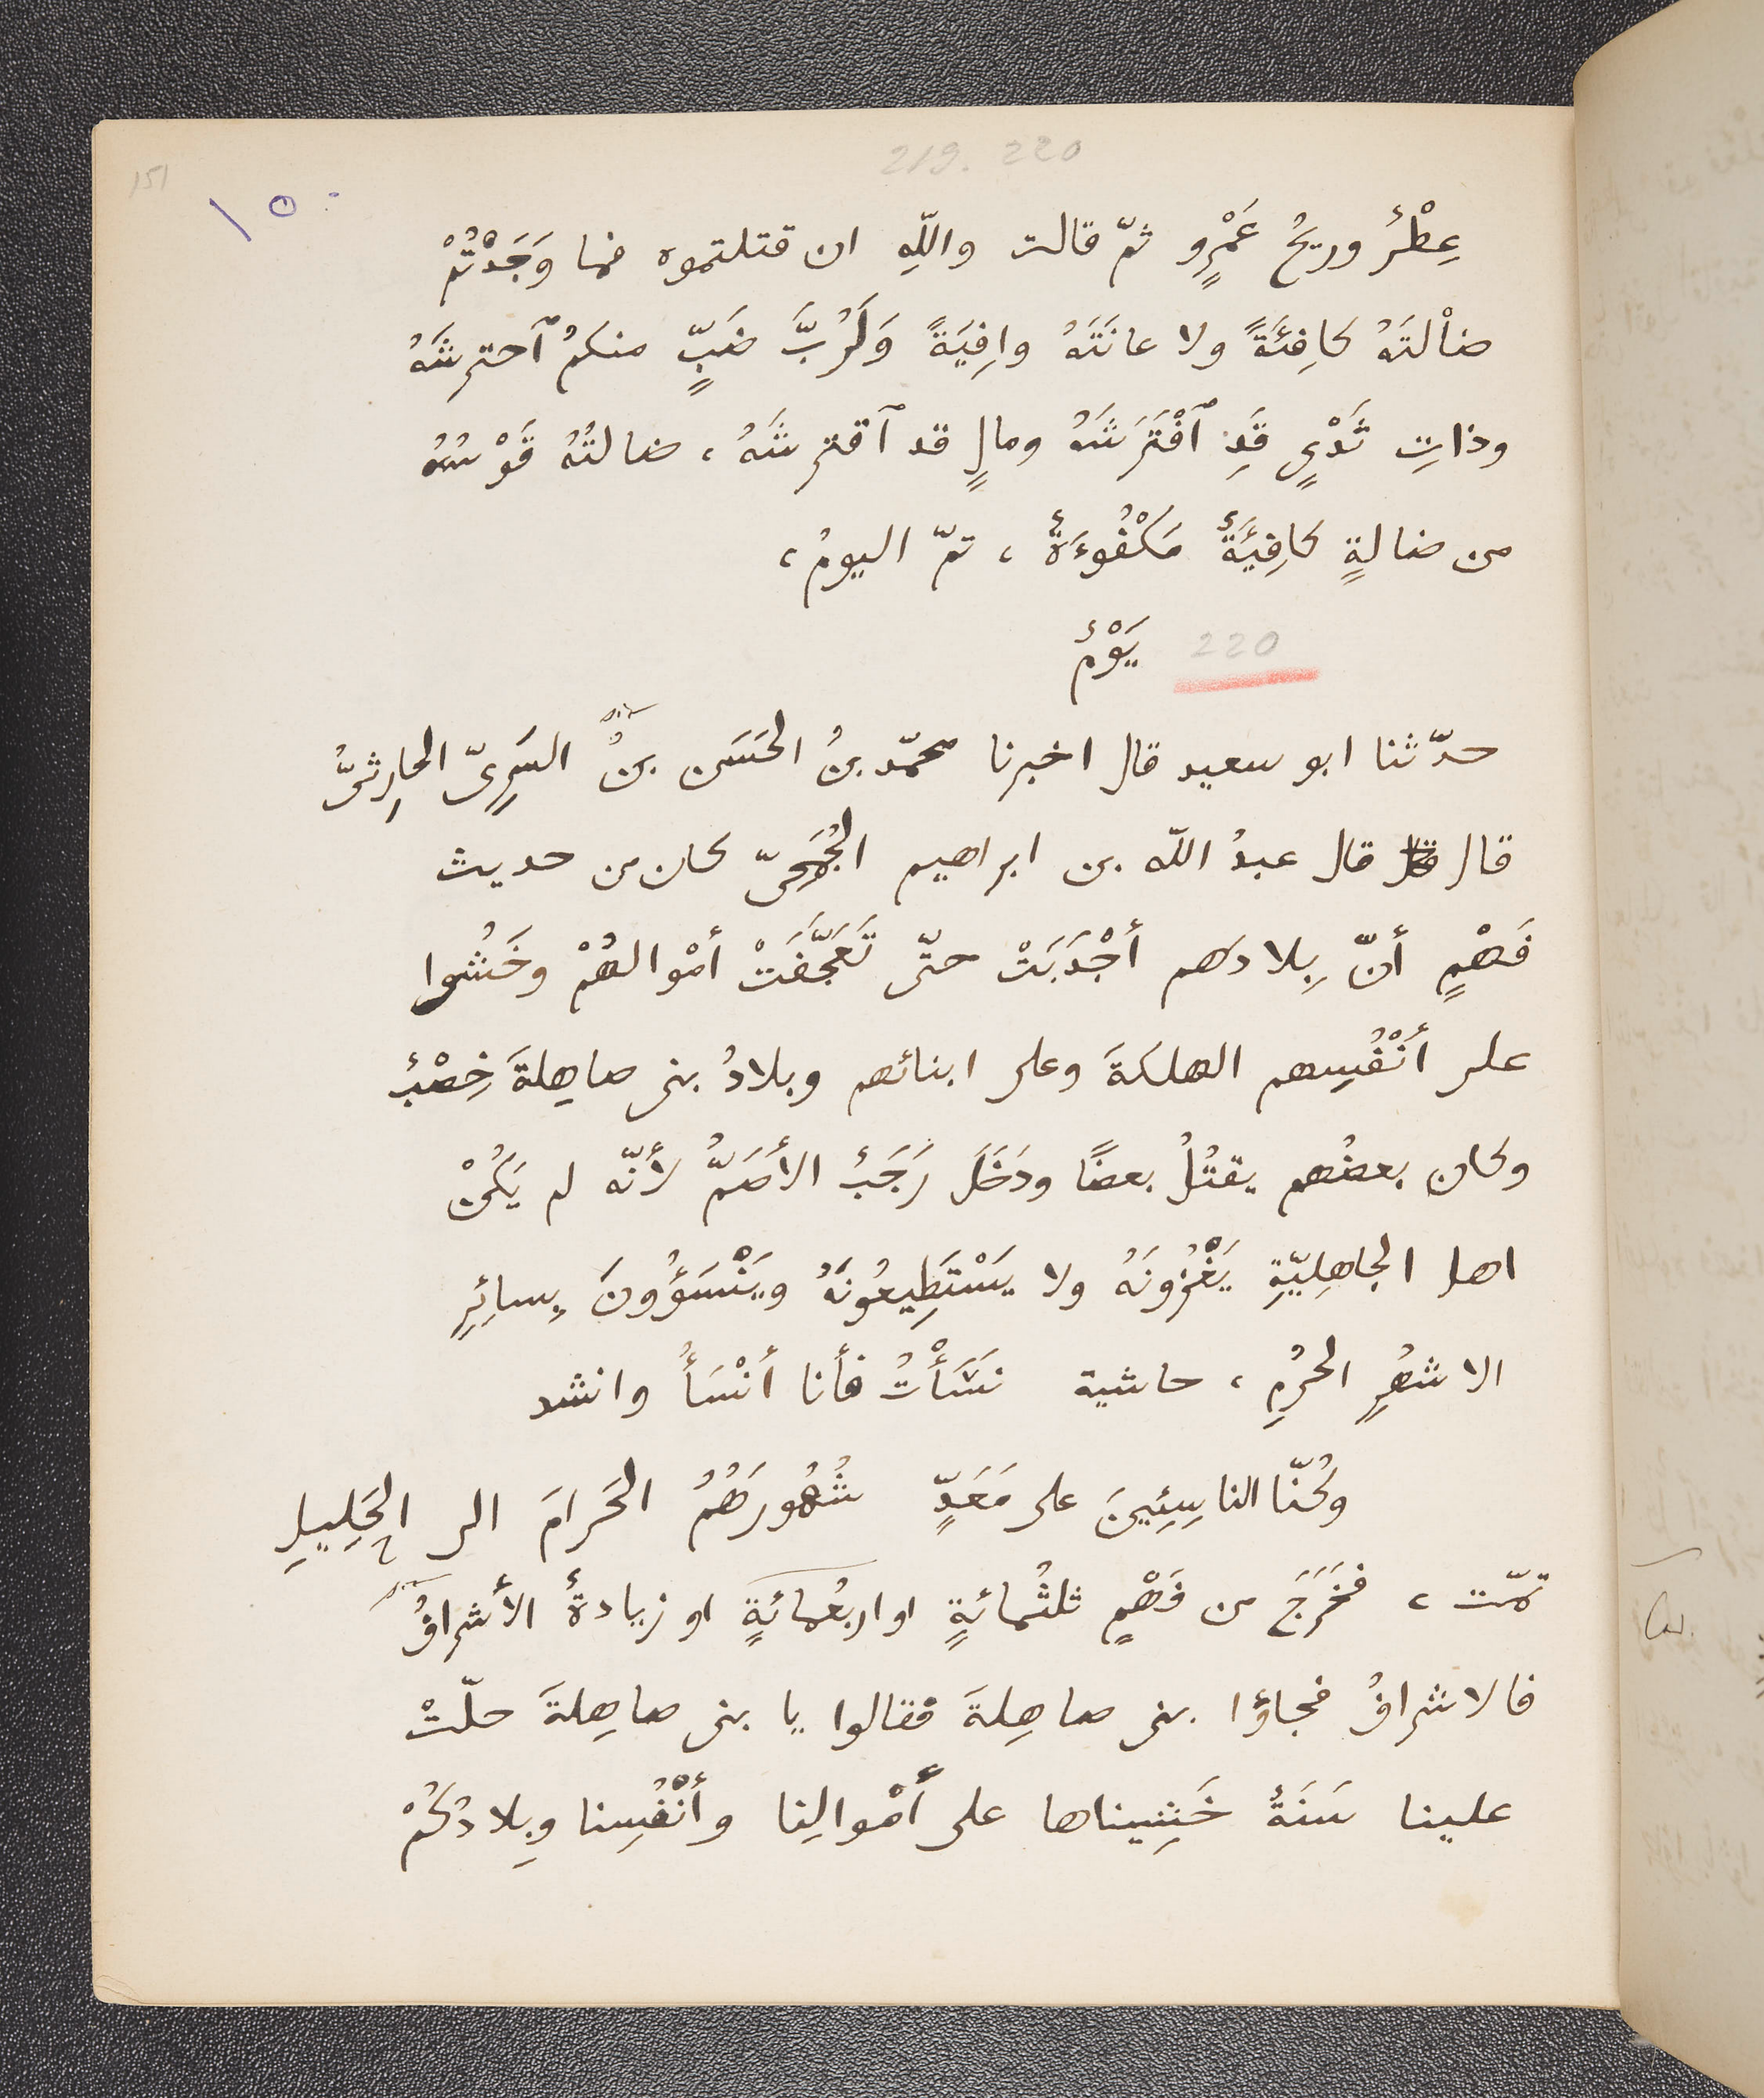 219. 220
151
١٥٠
عِطْرُ وريحُ عَمْرٍو ثمّ قالت واللّهِ ان قتلتموه فما وَجَدْتُمْ
ضألتَهُ كافِئَةً ولا عانَتَهُ وافِيَةً وَلَرُبَّ ضَبٍّ منكمُ ٱحترشَهُ
وذاتِ ثَدْىٍ قَدِ ٱفْتَرَشَهُ ومالٍ قد ٱقترشَهُ، ضالتُهُ قَوْسُهُ
من ضالةٍ كافِيَةٌ مَكْفُوءَةٌ، تمّ اليومُ،
220 يَوْمٌ
حدّثنا ابو سعيد قال اخبرنا محمّد بنُ الحَسَن بنُ السَرِىّ الحارِثىُّ
قال قال عبدُ اللّه بن ابراهيم الجُمَحىّ كان من حديث
فَهْمٍ أنّ بِلادَهم أجْدَبَتْ حتّى تَعَجَّفَتْ أمْوالهُمْ وخَشُوا
على أنْفُسِهم الهلكةَ وعلى ابنائهم وبلادُ بنى صاهِلةَ خِصْبٌ
وكان بعضُهم يقتُلُ بعضًا ودَخَلَ رَجَبٌ الأصَمُّ لأنّه لم يَكُنْ
اهل الجاهِلِيّةِ يَغْزُونَهُ ولا يَسْتَطِيعُونَهُ ويَنْسَؤُونَ بِسائِرِ
الاشهُرِ الحرُمِ، حاشية نَسَأْتُ فأنا أنْسَأُ وانشد
وكُنّا الناسِئِينَ على مَعَدٍّ شُهُورَهُمُ الحَرامَ الى الحَلِيلِ
تمّت، فخَرَجَ من فَهْمٍ ثلثُمائةٍ او اربعُمائةٍ او زيادةٌ الأشرافُ
فالاشرافُ فجاؤا بنى صاهِلةَ فقالوا يا بنى صاهِلةَ حلّتْ
علينا سَنَةٌ خَشِيناها على أمْوالِنا وأنْفُسِنا وبِلادُكُمْ